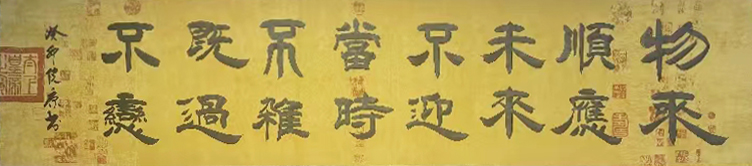 物來
順應
未來
不迎
當時
不雜
既過
不戀
癸卯